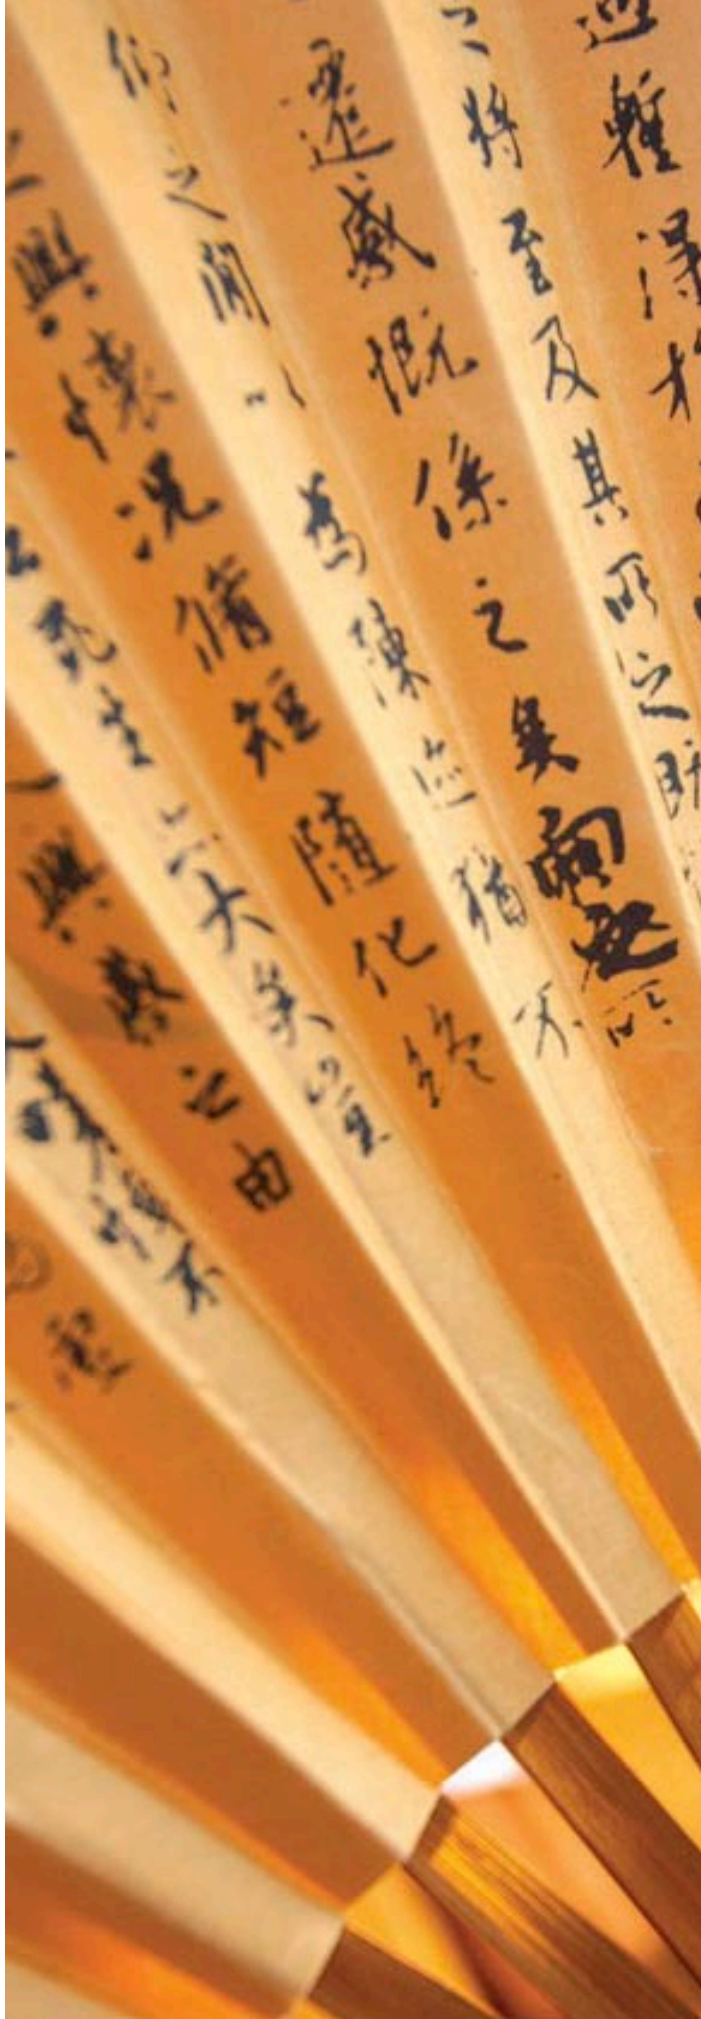 遇暫得於
之將至及其所之既
遷感慨係之矣向之所
仰之間以為陳迹猶不
之興懷況脩短隨化終
云死生亦大矣豈
興感之由
不
虛